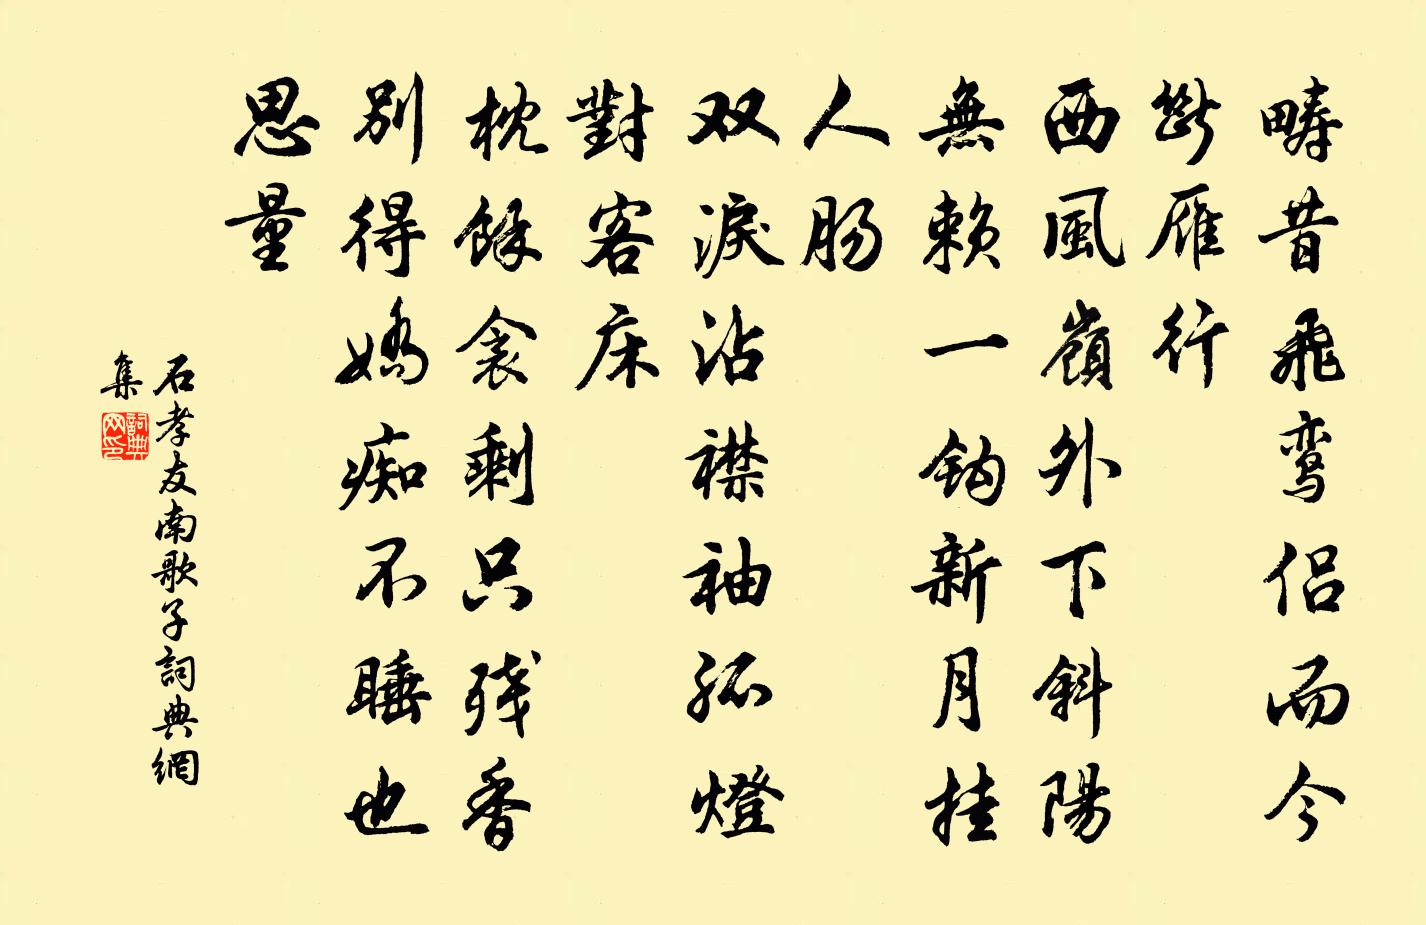 疇昔飛鸾侣而今
斷雁行
西風嶺外下斜陽
無賴一鈎新月挂
人肠
双淚沾襟袖孤燈
對客床
枕餘衾剩只残香
别得嬌痴不睡也
思量
石孝友南歌子詞典網
集
詞典
网印